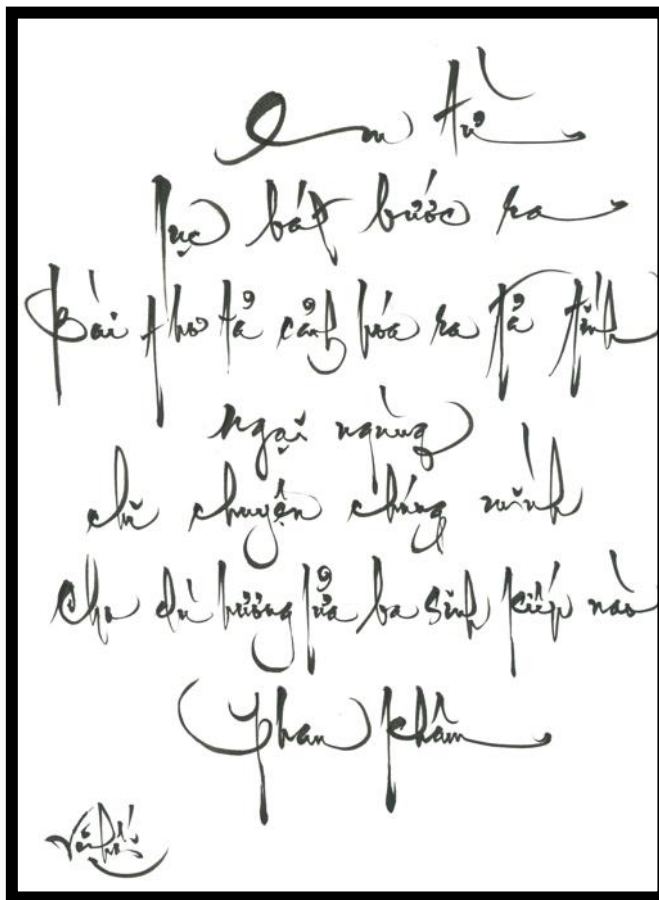 Em từ
lục bát bước ra
Bài thơ tả cảnh hóa ra tả tình
ngại ngùng
chi chuyện chúng mình
cho dù hương lửa ba sinh kiếp nào
Phan Khâm